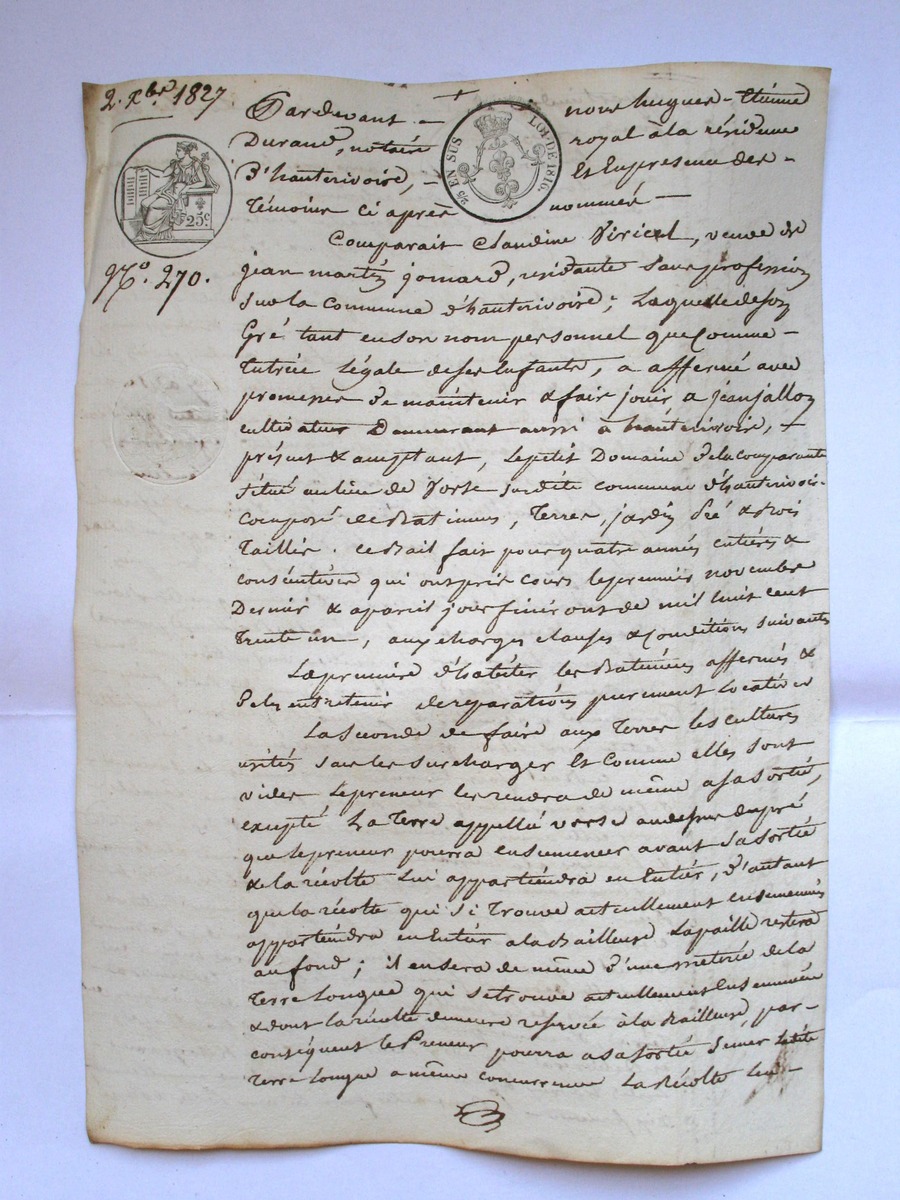 2. Xbre 1827
Pardevant - nous hugues - Etienne
Durand, notaire royal à la résidence
d'hauterivoire, - et en presence des -
témoins ci après nommés -
25 EN SUS LOI DE 1816.
25c.
No. 270.
Comparait Claudine Viricel, veuve de
jean martin jomard, residante sans profession
sur la commune d'hauterivoire; Laquelle de son
Gré tant en son nom personnel que comme -
tutrice légale de ses Enfants, a affermé avec
promesse de maintenir & fair jouir a jean jallon
cultivateur Demeurant aussi à hauterivoire, -
présent & acceptant, le petit Domaine de la comparante
situé au lieu de Vorse susdite commune d'hauterivoire
composé de Batimens, Terres, jardin Pré & Bois
Taillis. ce Bail fait pour quatre années entières &
consécutives qui ont pris cours le premier novembre
Dernier & a pareil jour finiront de mil huit cent
trente un, aux charges clauses & conditions suivantes
La premiere d'habiter les Batimens affermés &
de les entretenir de reparations purement Locatives
La seconde de faire aux Terres les cultures
usités sans les surcharger Et Comme elles sont
vides le preneur les rendra de même a sa sortie,
excepté La Terre appellée verse au dessus du pré
que le preneur pourra ensemencer avant Sa sortie
& de la récolte Lui appartiendra en Entier, d'autant
que la récolte qui si Trouve actuellement ensemencés
appartiendra en Entier a la Bailleuse La paille restera
au fond; il en sera de même d'une meterée de la
Terre Longue qui se trouve actuellement Ensemencée
& dont la récolte demeure reservée à la Bailleuse, par-
conséquent le Preneur pourra a sa sortie semer la dite
terre Longue a même concurrence La Récolte lui -